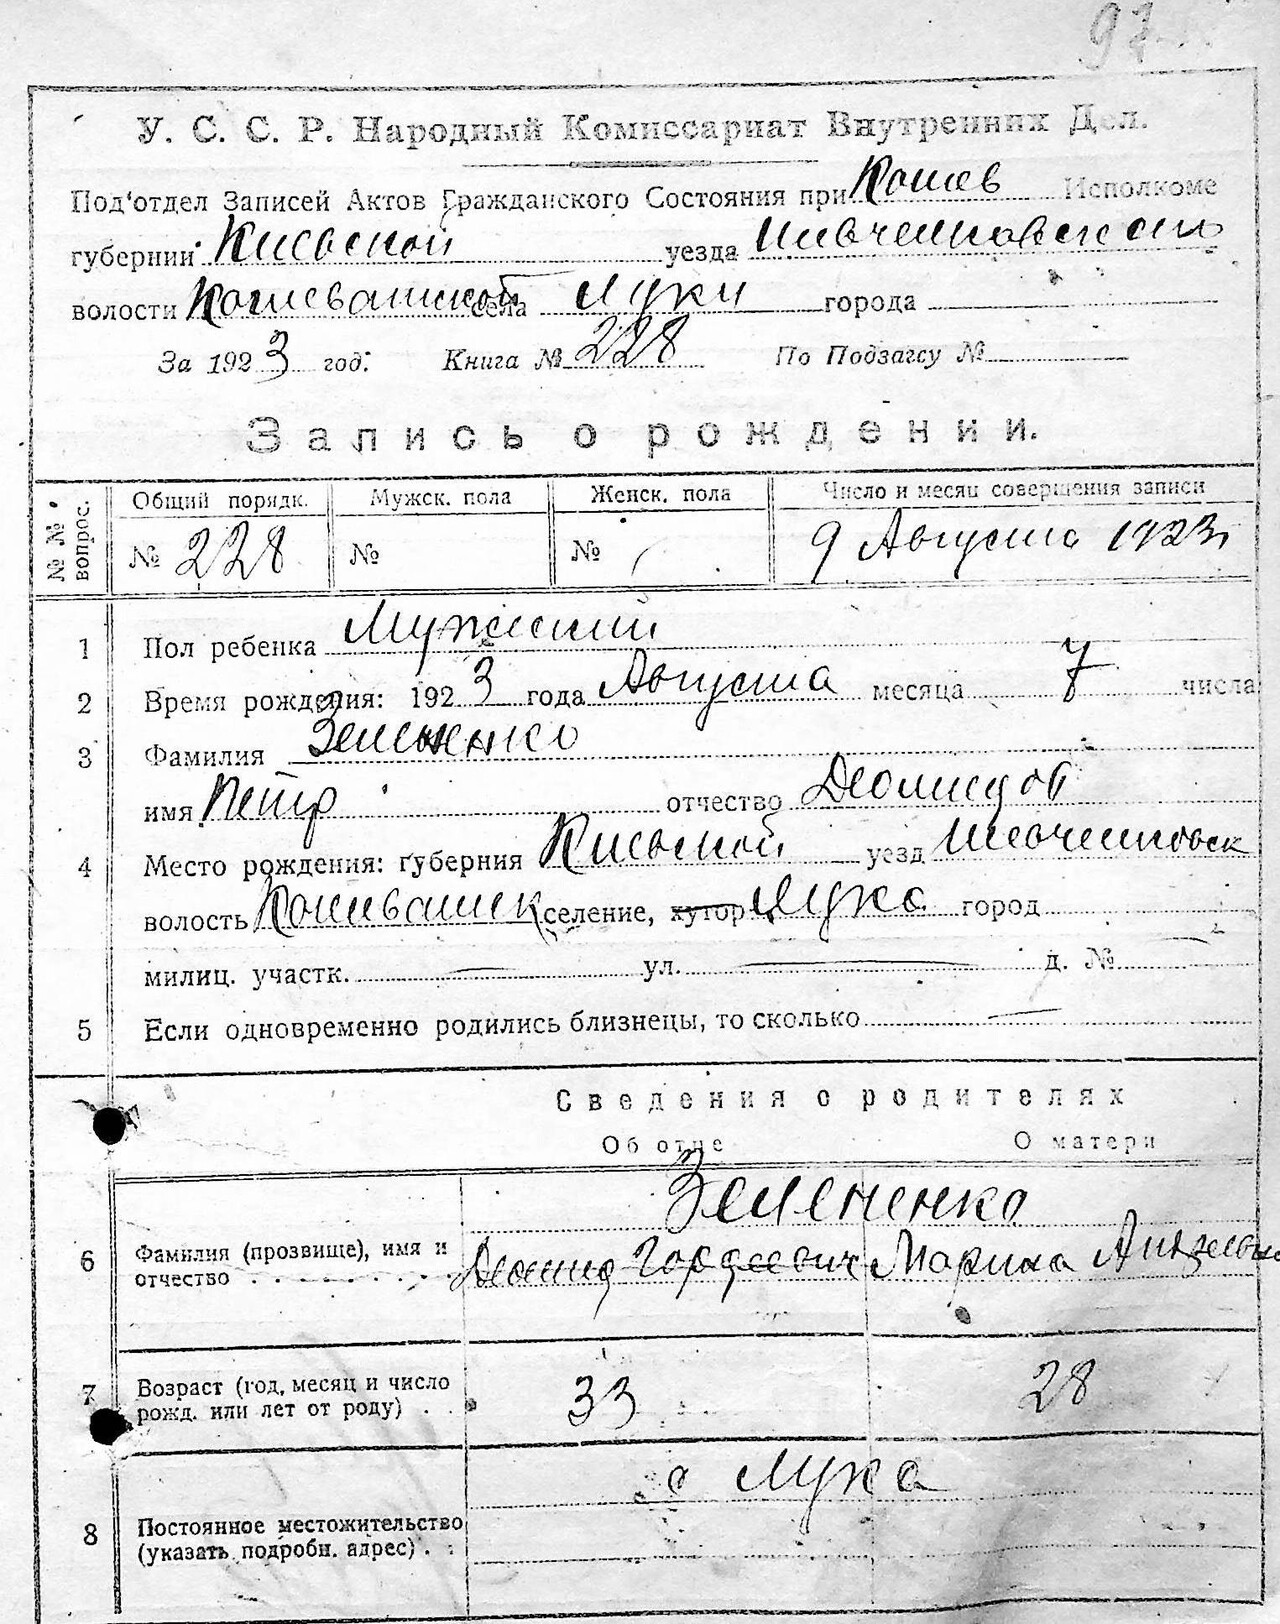 97
У. С. С. Р. Народный Комиссариат Внутренних Дел.
Под'отдел Записей Актов Гражданского Состояния при Кошев Исполкоме
губернии Киевской уезда Шевченковского
волости Кошеватской села Луки города
За 1923 год: Книга № 228 По Подзагсу №
Запись о рождении.
№ № вопрос. Общий порядк. Мужск. пола Женск. пола Число и месяц совершения записи
№ 228 № № 9 Августа 1923
1 Пол ребенка Мужский
2 Время рождения: 1923 года Августа месяца 7 числа
3 Фамилия
имя Петр отчество Леонидов
4 Место рождения: губерния Киевской уезд Шевченковск
волость Кошеватск селение, хутор Лука город
милиц. участк. ул. д. №
5 Если одновременно родились близнецы, то сколько
Сведения о родителях
Об отце О матери
Зелененко
6 Фамилия (прозвище), имя и
отчество . . . . . . . Леонид Гордеевич Марина
7 Возраст (год, месяц и число
рожд. или лет от роду) . . 33 28
с Лука
8 Постоянное местожительство
(указать подробн. адрес) . .